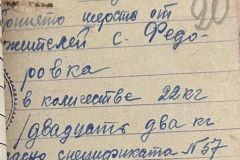 20
принято шерсть от
жителей с. Федо-
ровка
в количестве 22 кг
/двадцать два кг
спецификата №57